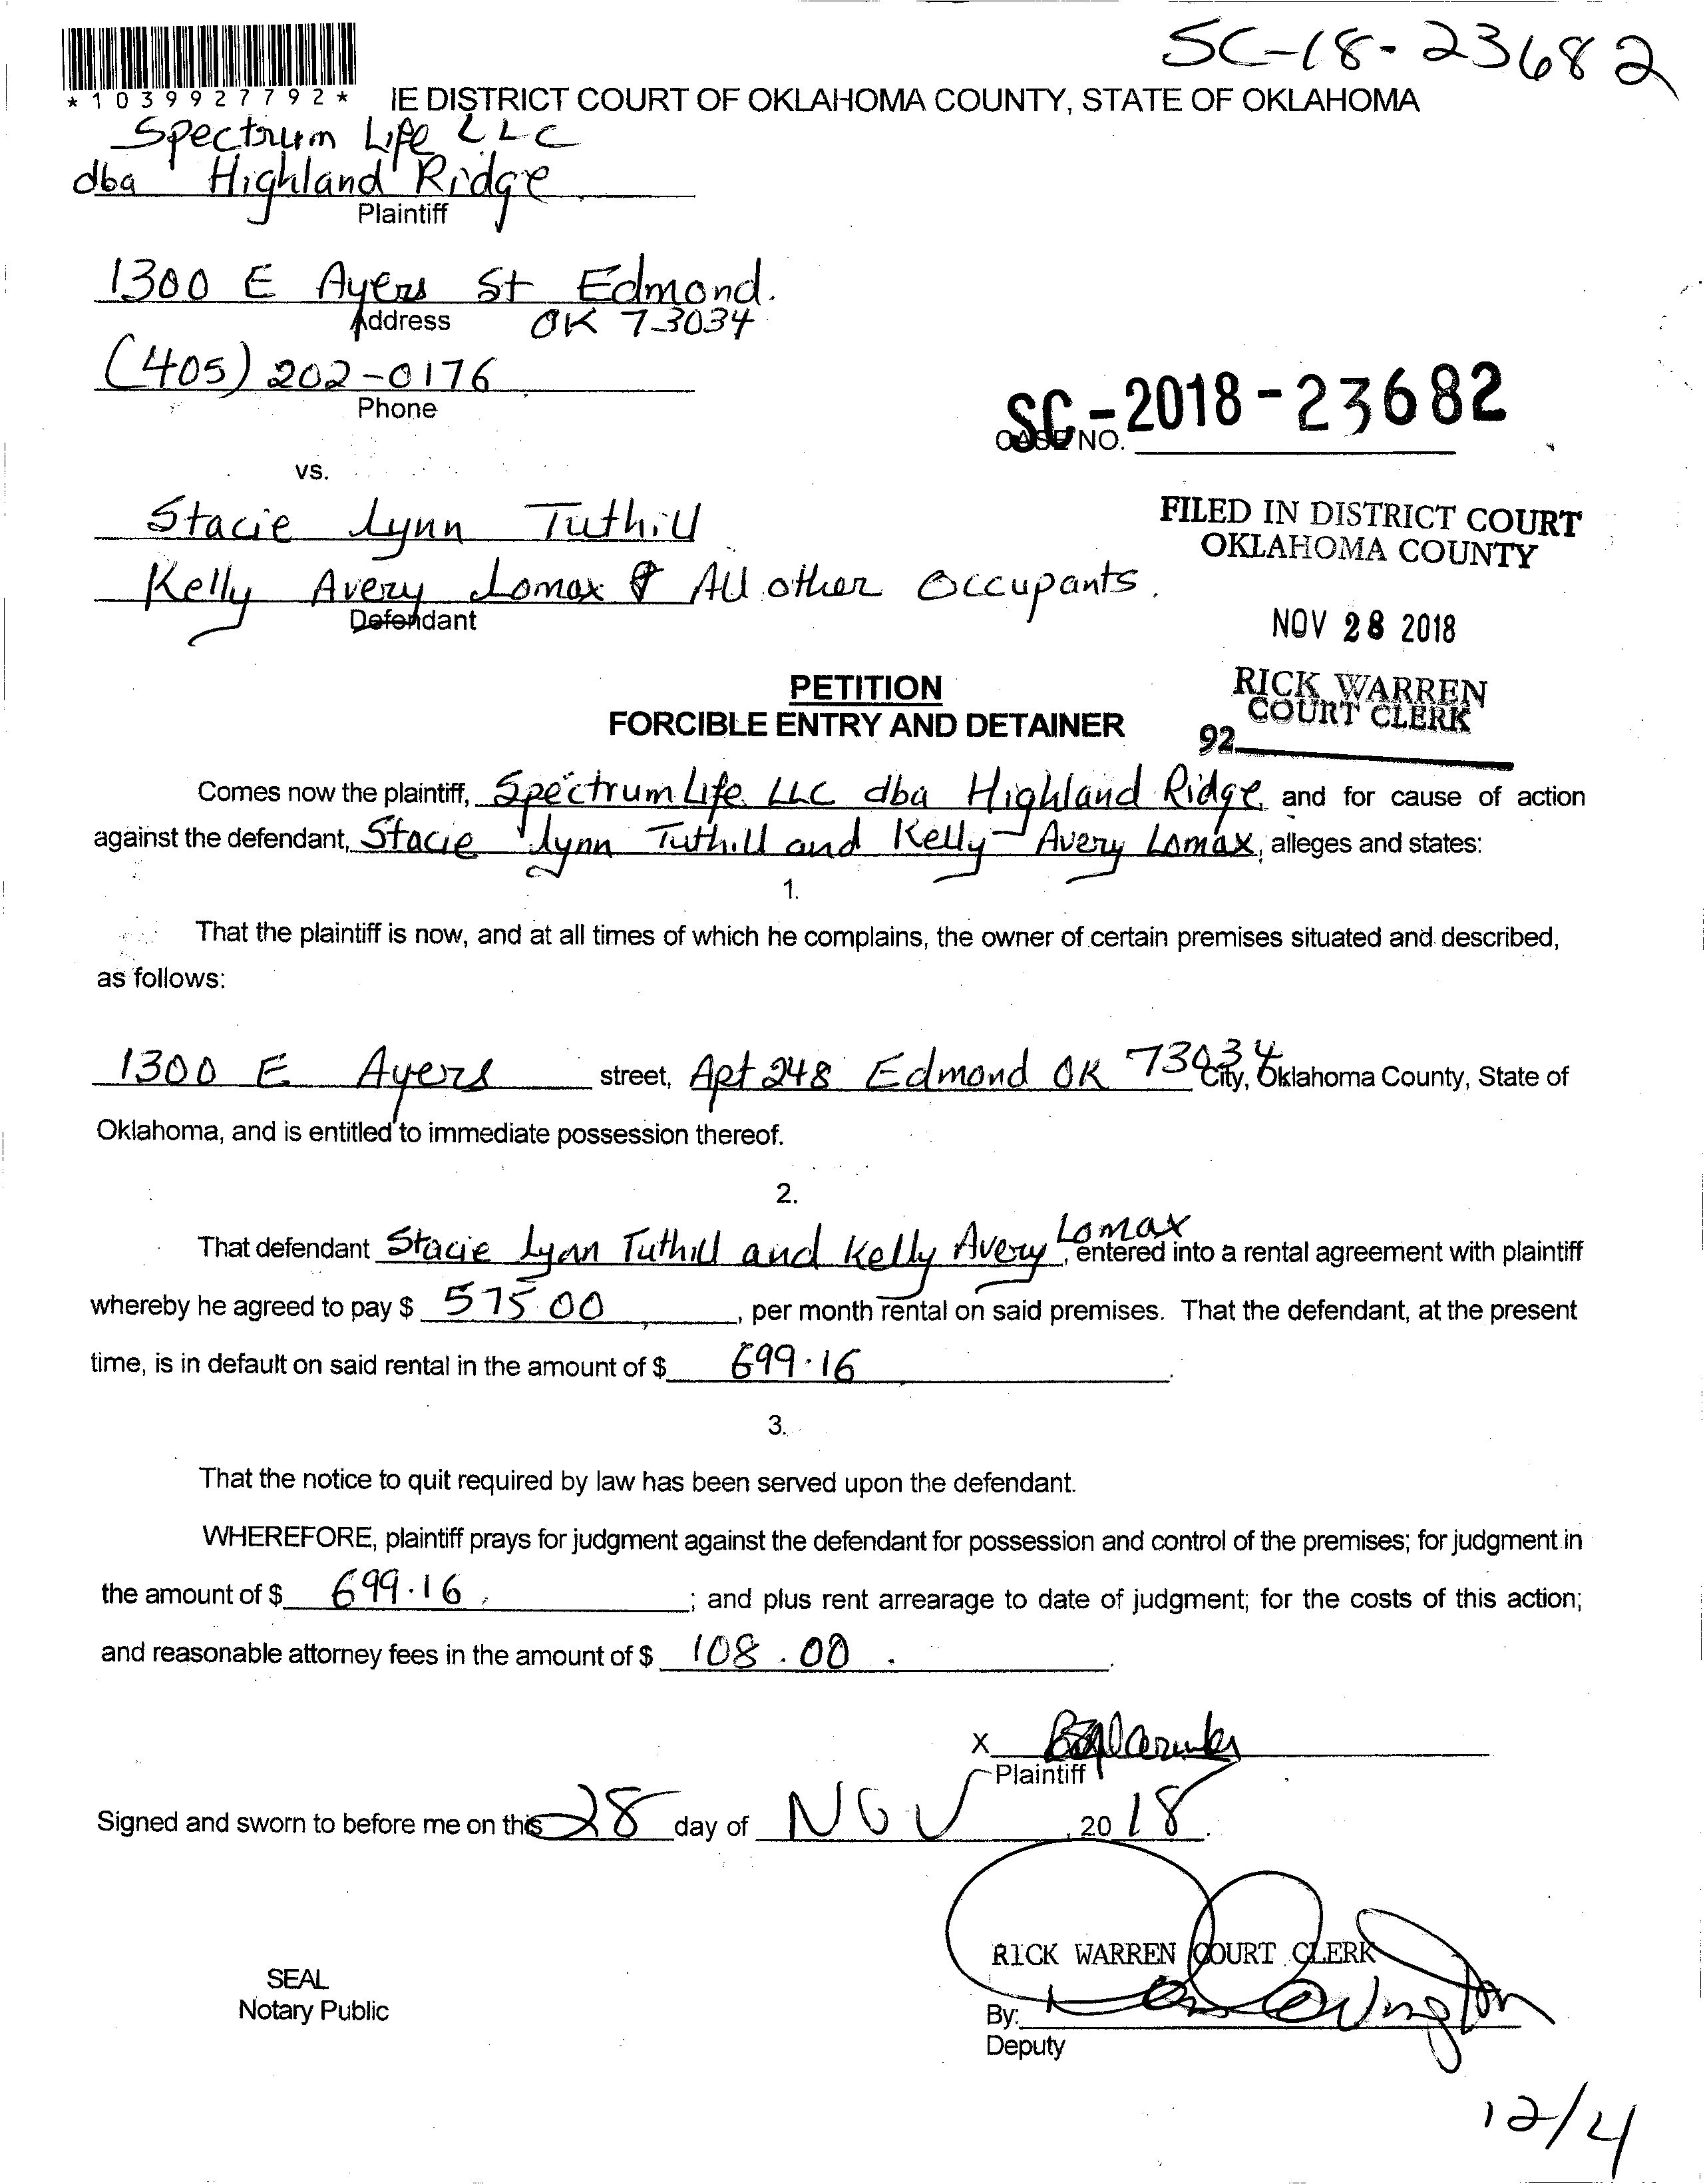 SC-18-23682
*1039927792*
IE DISTRICT COURT OF OKLAHOMA COUNTY, STATE OF OKLAHOMA
Spectrum Life LLC
dba Highland Ridge
Plaintiff
1300 E Ayers St Edmond.
Address OK 73034
(405) 202-0176
Phone
SC-2018-23682
CASE NO.
vs.
Stacie Lynn Tuthill
Kelly Avery Lomax & All other Occupants.
Defendant
FILED IN DISTRICT COURT
OKLAHOMA COUNTY
NOV 28 2018
RICK WARREN
COURT CLERK
92
PETITION
FORCIBLE ENTRY AND DETAINER
Comes now the plaintiff, Spectrum Life LLC dba Highland Ridge and for cause of action
against the defendant, Stacie Lynn Tuthill and Kelly Avery Lomax, alleges and states:
1.
That the plaintiff is now, and at all times of which he complains, the owner of certain premises situated and described,
as follows:
1300 E Ayers street, Apt 248 Edmond OK 73034 City, Oklahoma County, State of
Oklahoma, and is entitled to immediate possession thereof.
2.
That defendant Stacie Lynn Tuthill and Kelly Avery Lomax, entered into a rental agreement with plaintiff
whereby he agreed to pay $ 575.00, per month rental on said premises. That the defendant, at the present
time, is in default on said rental in the amount of $ 699.16.
3.
That the notice to quit required by law has been served upon the defendant.
WHEREFORE, plaintiff prays for judgment against the defendant for possession and control of the premises; for judgment in
the amount of $ 699.16; and plus rent arrearage to date of judgment; for the costs of this action;
and reasonable attorney fees in the amount of $ 108.00.
X
Plaintiff
Signed and sworn to before me on this 28 day of NOV, 2018.
RICK WARREN COURT CLERK
SEAL
Notary Public
By:
Deputy
12/4